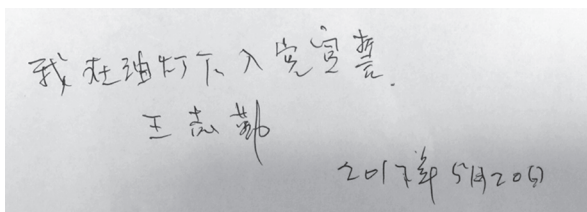 我在油灯下入党宣誓.
王志勤
2017年5月20日